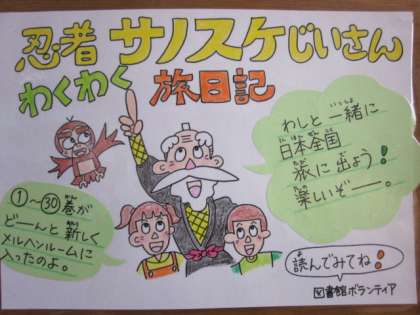 忍者 サノスケじいさん
わくわく 旅日記
わしと一緒に
日本全国
旅に出よう!
楽しいぞー。
①~㉚巻が
どーんと新しく
メルヘンルームに
入ったのよ。
読んでみてね!
図書館ボランティア